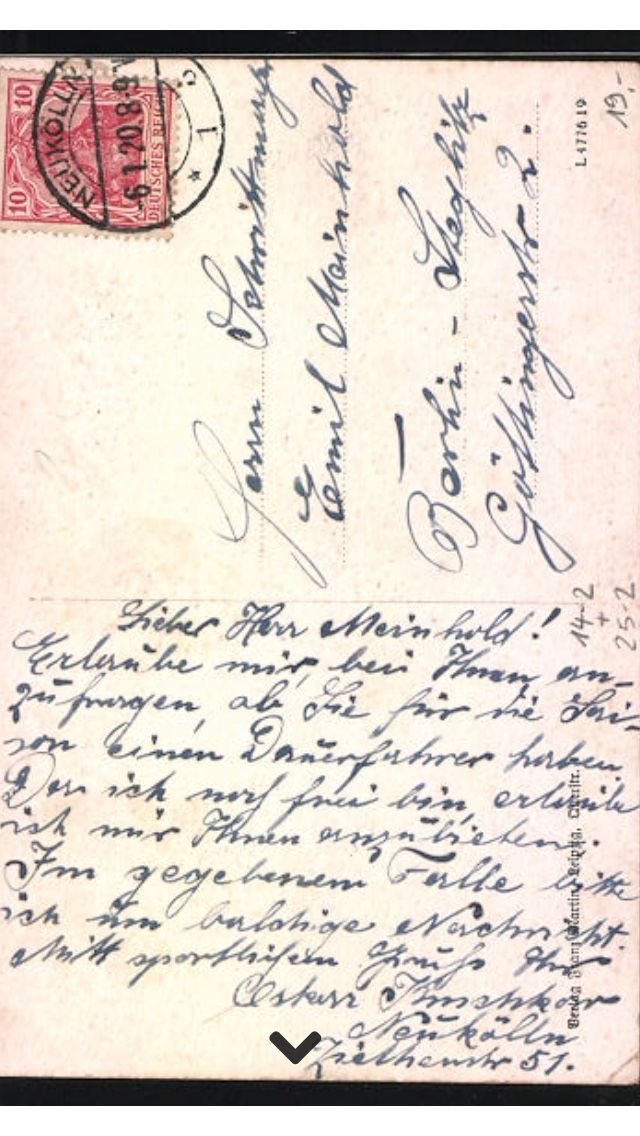 10
10
DEUTSCHES REICH
NEUKÖLLN
-6.1.20.8-9V
* 1
L 4776 19
19,-
Herrn Schrittmacher
Emil Meinhold
Berlin - Steglitz
Göttingerstr 2.
14-2
+
25-2
Lieber Herr Meinhold!
Erlaube mir, bei Ihnen an-
zufragen, ob Sie für die Sai-
son einen Dauerfahrer haben.
Da ich noch frei bin, erlaube
ich mir Ihnen anzubieten.
Im gegebenem Falle bitte
ich um baldige Nachricht.
Mitt sportlichem Gruss Ihr
Oskar
Neukölln
Ziethenstr 51.
Verlag Franz Martin, Leipzig,